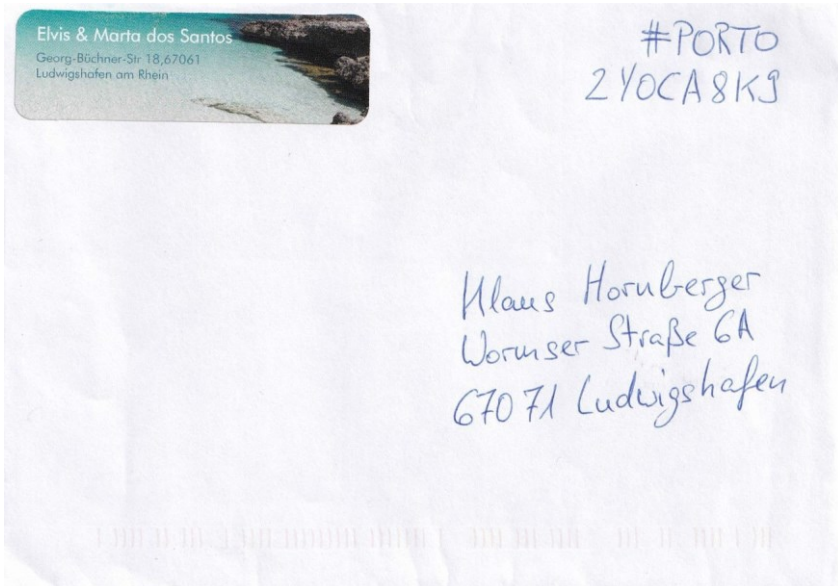 Elvis & Marta dos Santos
Georg-Büchner-Str 18,67061
Ludwigshafen am Rhein
#PORTO
2YOCA8K9
Klaus Hornberger
Wormser Straße 6A
67071 Ludwigshafen